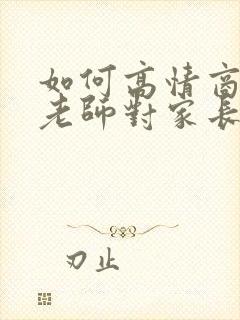 如何高情商
老師對家長
刃止